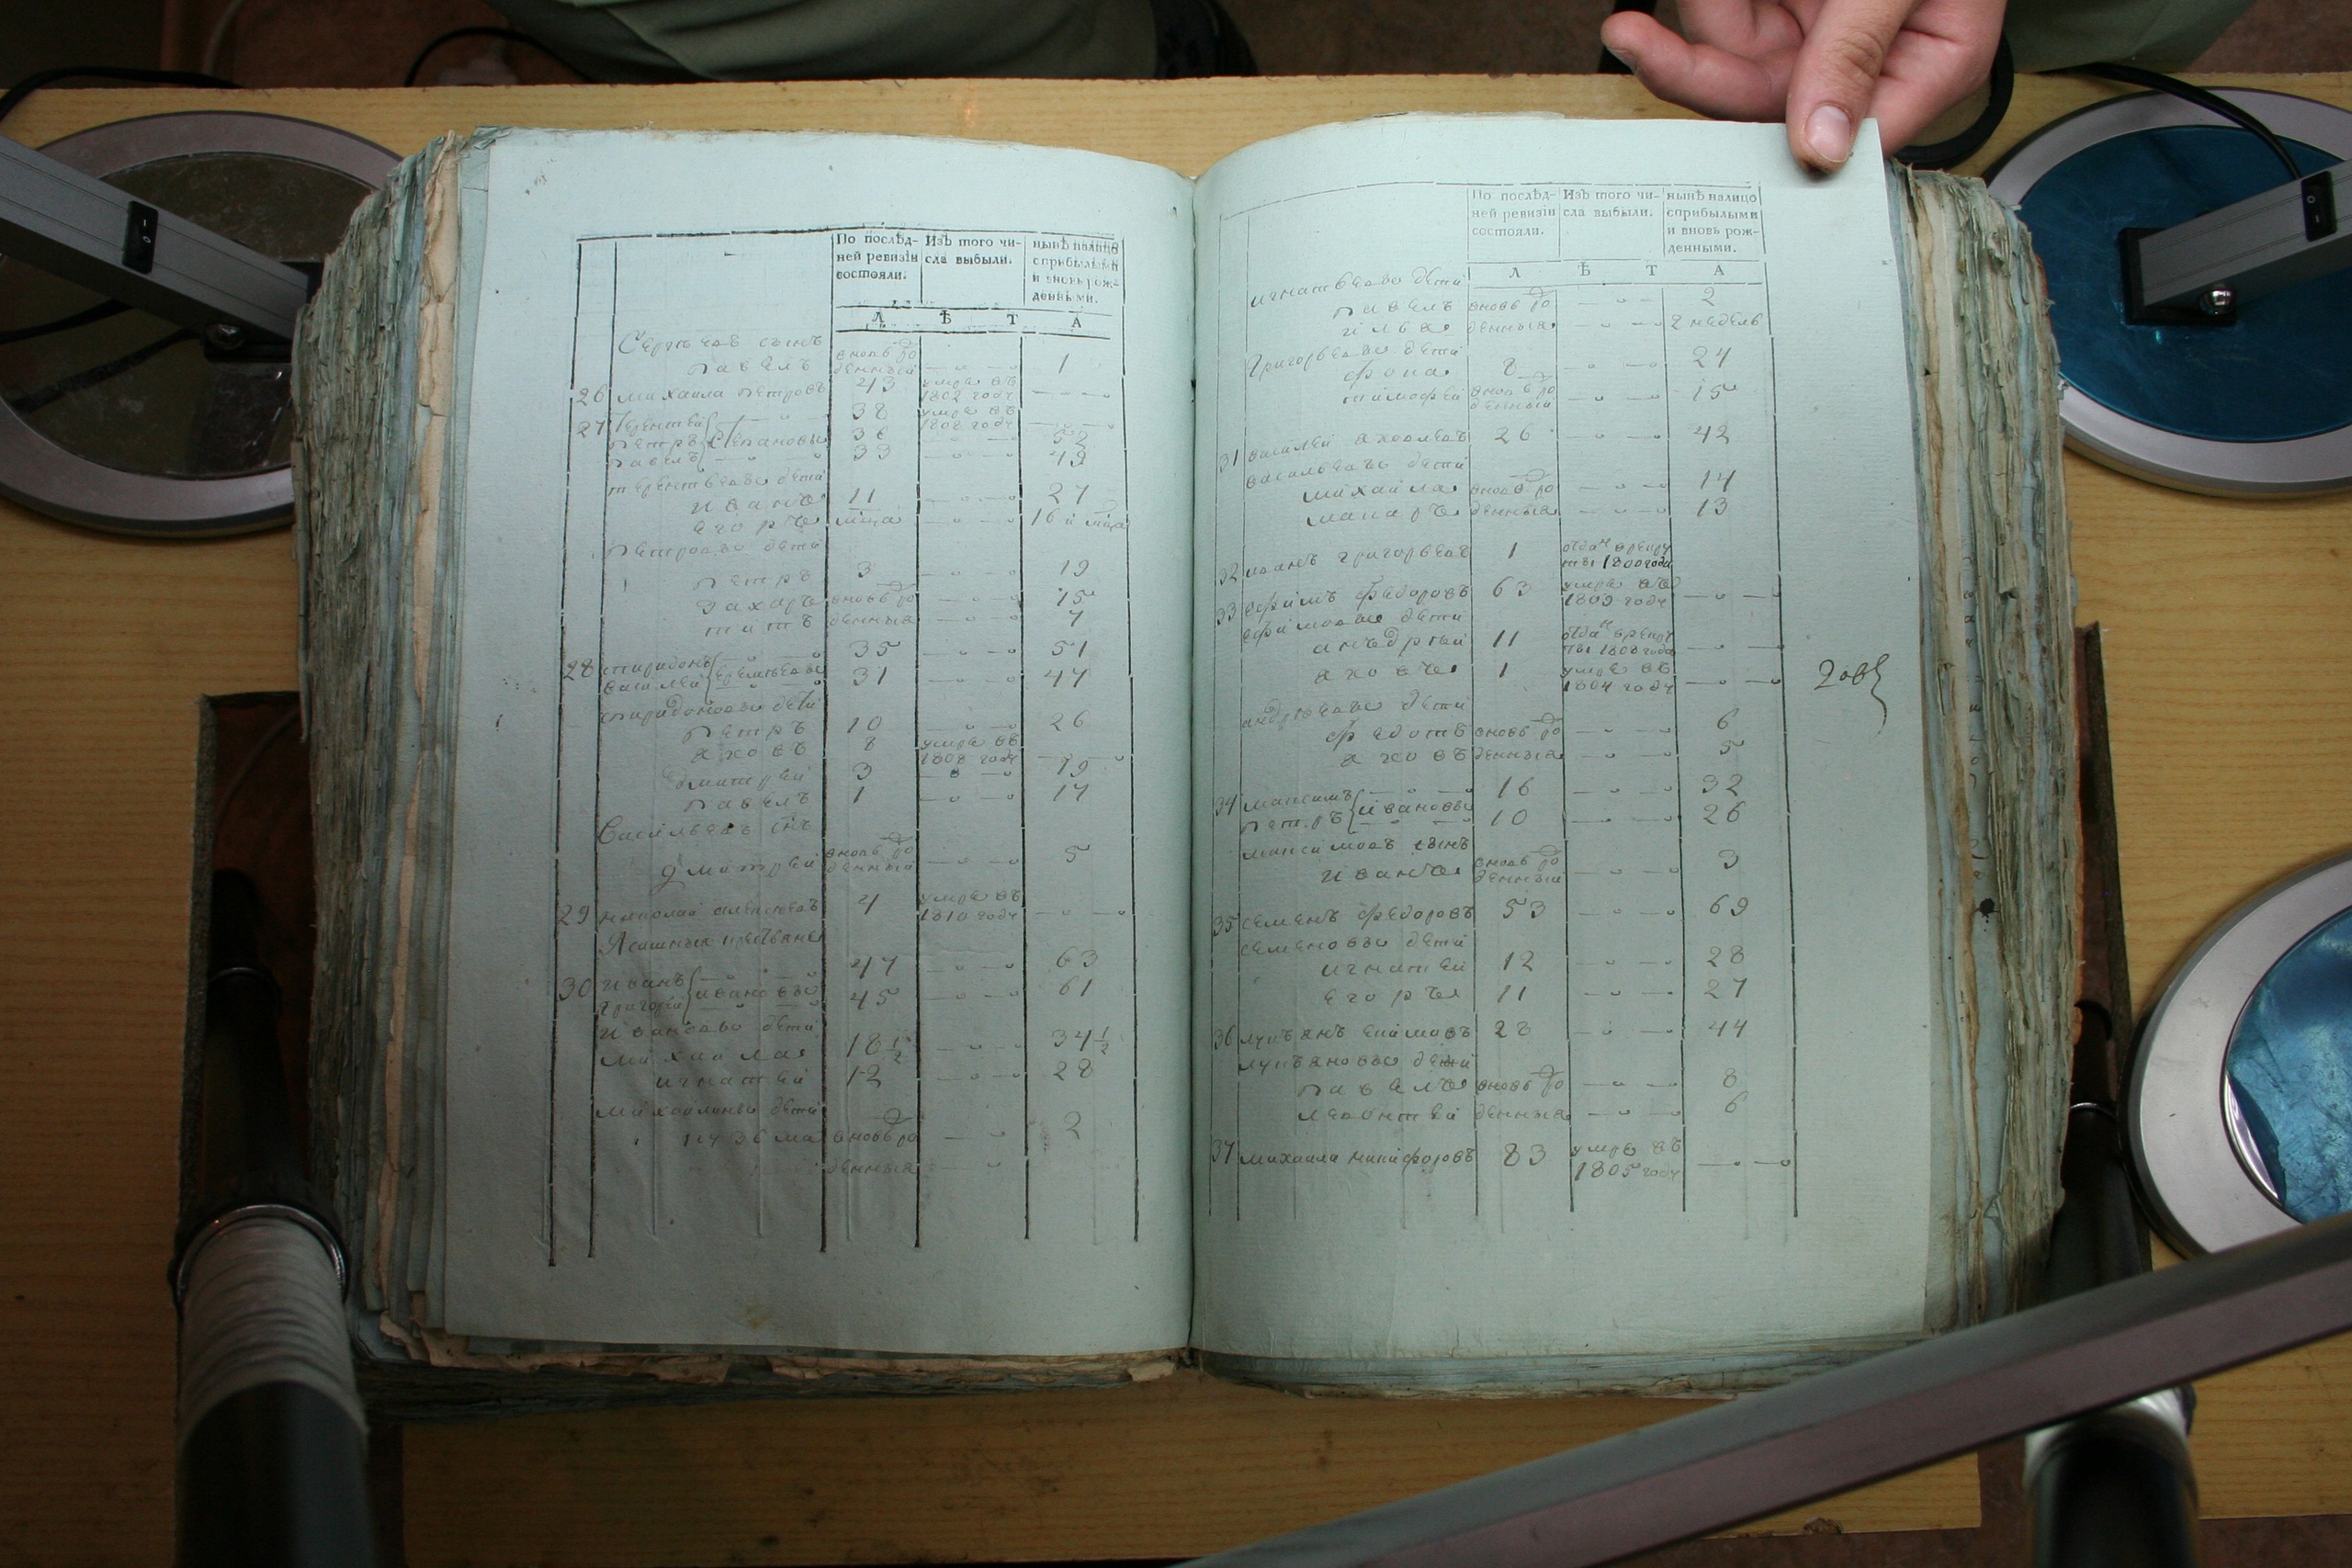 По послѣд-
ней ревизіи
состояли.
Изъ того чи-
сла выбыли.
нынѣ налицо
сприбылыми
и вновь рож-
денными.
Л Ѣ Т А
Сергѣевъ сынъ
павелъ вновь ро 1
денный
26 михаила петровъ 43 умре въ
1802 годч
27 терентей 38 умре въ
1808 годч
петръ степановы 36 52
павелъ 33 49
терентьевы дети
иванъ 11 27
егоръ мца 16 и мца
петровы дети
петръ 3 19
захаръ вновь ро 15
титъ денныя 7
28 спиридонъ 35 51
василей еремѣевы 31 47
спиридоновы дети
петръ 10 26
яковъ 8 умре въ
1808 годч
дмитрей 3 19
павелъ 1 17
Васильевъ снъ
дмитрей вновь ро 5
денный
29 николай алексѣевъ 4 умре въ
1810 годч
30 иванъ 47 63
григорей ивановы 45 61
ивановы дети
михаила 18 1/2 34 1/2
игнатей 12 28
михайлины дети
кузьма вновь ро 2
денныя
По послѣд-
ней ревизіи
состояли.
Изъ того чи-
сла выбыли.
нынѣ налицо
сприбылыми
и вновь рож-
денными.
Л Ѣ Т А
игнатьевы дети
павелъ вновь ро 2
илья денныя 2 недель
Григорьевы дети
фома 8 24
тимофей вновь ро 15
денный
31 василей яковлевъ 26 42
васильевы дети
михаила вновь ро 14
макаръ денныя 13
32 иванъ григорьевъ 1 отдан врекру
ты 1800 года
33 ефимъ федоровъ 63 умре въ
1809 годч
ефимовы дети
андрей 11 отдан врекру
ты 1808 года
яковъ 1 умре въ
1804 годч
андрѣевы дети
федотъ вновь ро 6
яковъ денныя 5
34 максимъ 16 32
петръ ивановы 10 26
максимовъ сынъ
иванъ вновь ро 3
денный
35 семенъ федоровъ 53 69
семеновы дети
игнатей 12 28
егоръ 11 27
36 лукъянъ екимовъ 28 44
лукъяновы дети
павелъ вновь ро 8
леонтей денныя 6
37 михаила никифоровъ 83 умре въ
1805 годч